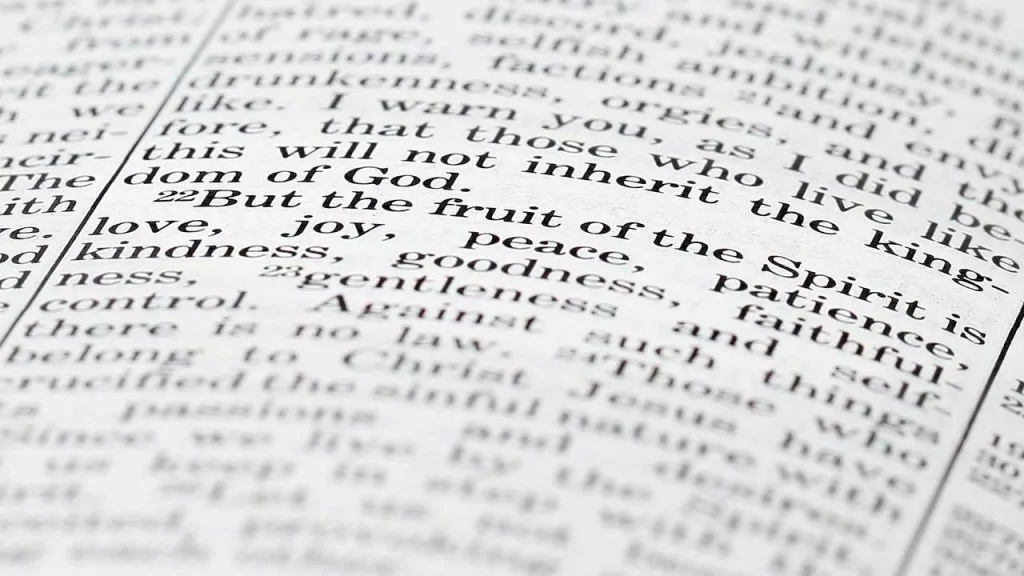 from
eager-
the
we
nei-
ncir-
The
ith
ve.
od
d
and witchcra
discord, jealousy, f
of rage, selfish ambition, dis
sensions, factions 21and envy
drunkenness, orgies, and the
like. I warn you, as I did be-
fore, that those who live like
this will not inherit the king-
dom of God.
22But the fruit of the Spirit is
love, joy, peace, patience,
kindness, goodness, faithful-
ness, 23gentleness and self-
control. Against such things
there is no law. 24Those who
belong to Christ Jesus have
crucified the sinful nature with
passions and desires.
Since we live by the Spirit,
us keep in step with